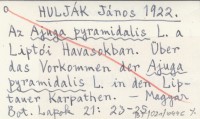 HULJÁK János 1922.
Az Ajuga pyramidalis L. a
Liptói Havasokban. Über
das Vorkommen der Ajuga
pyramidalis L. in den Lip-
tauer Karpathen. - Magyar
Bot. Lapok 21: 23-25.